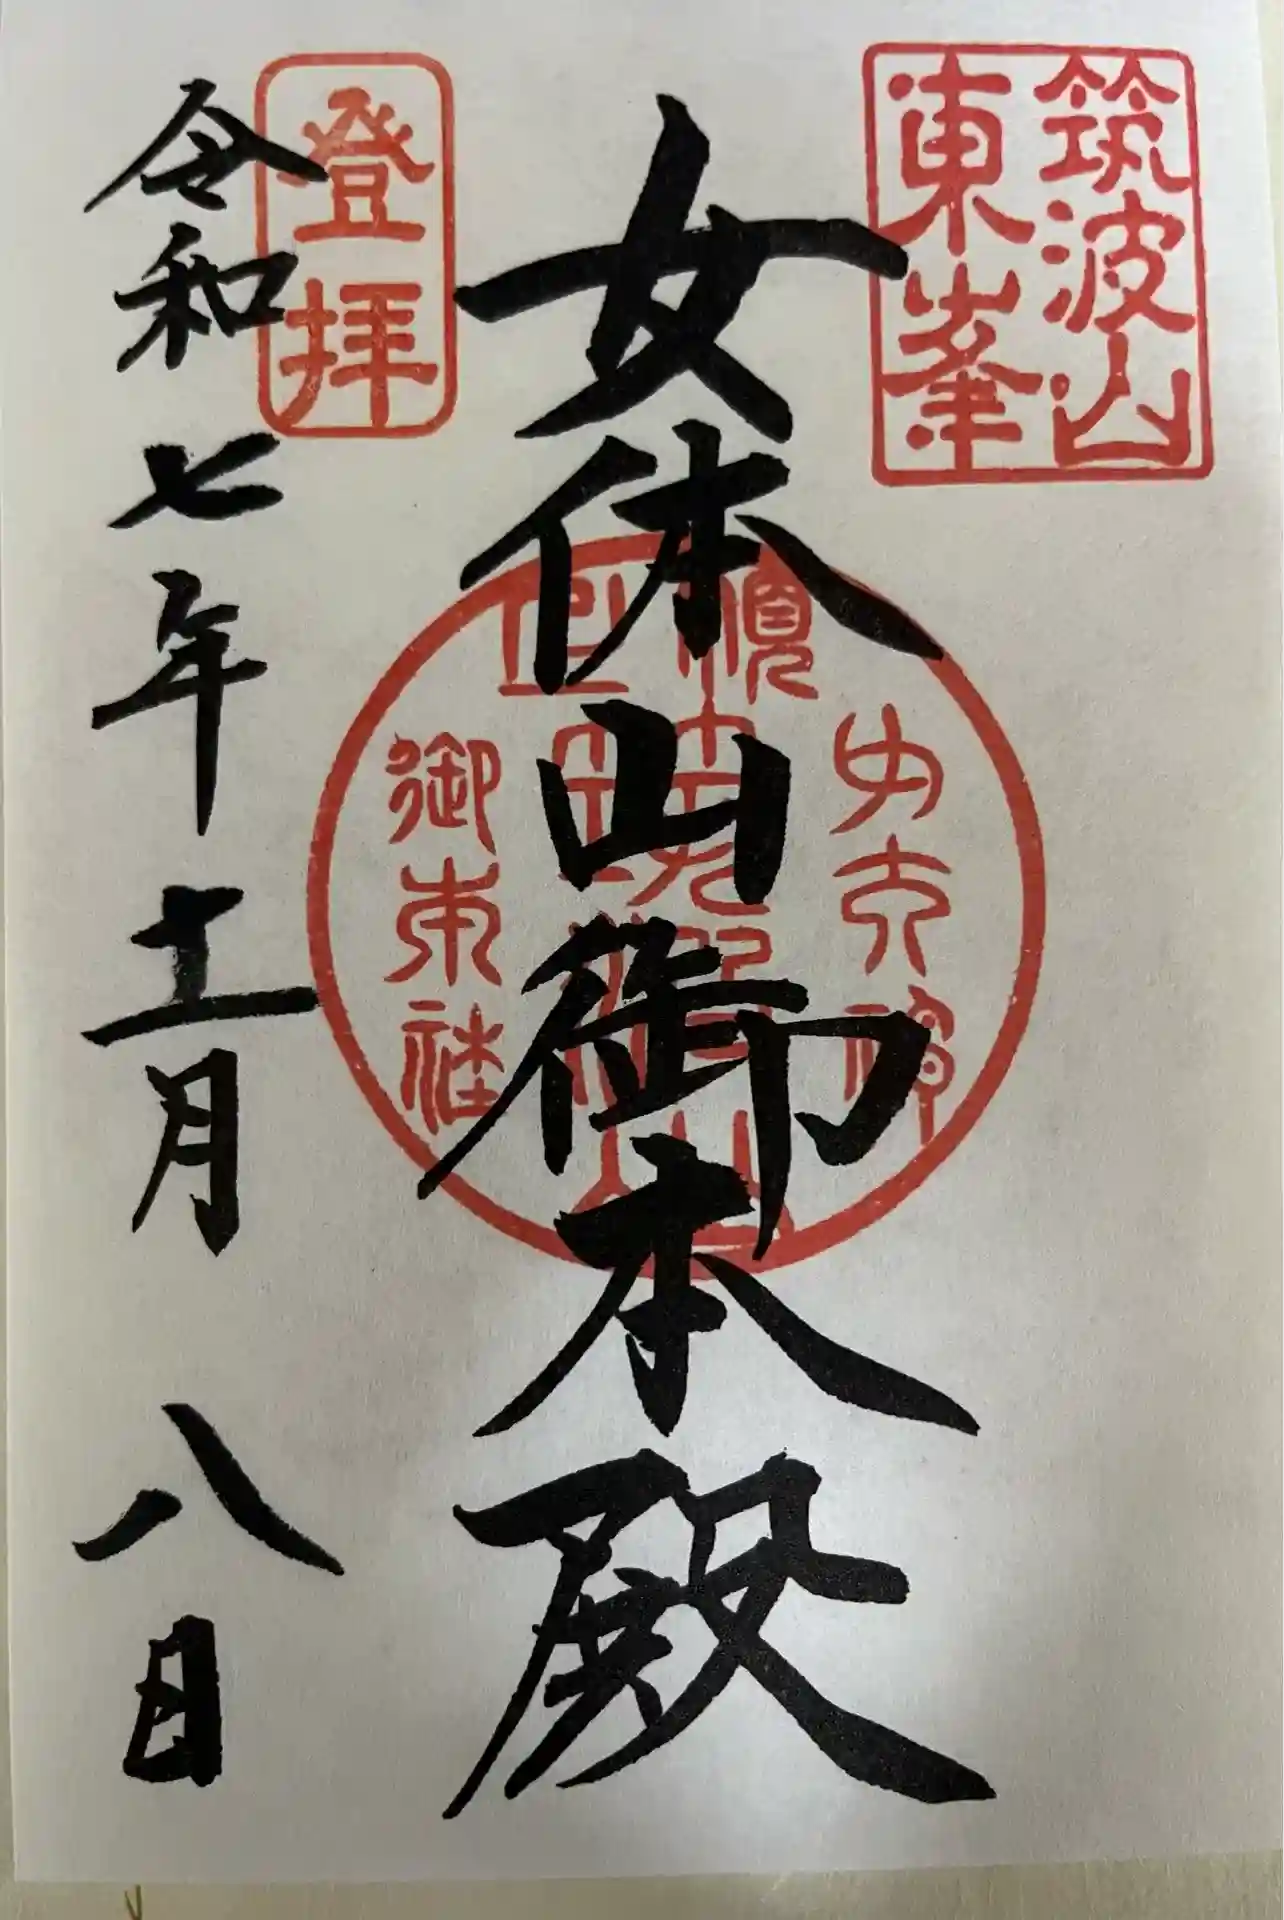 筑波山
東峯
女体山御本殿
登拝
令和七年十一月八日